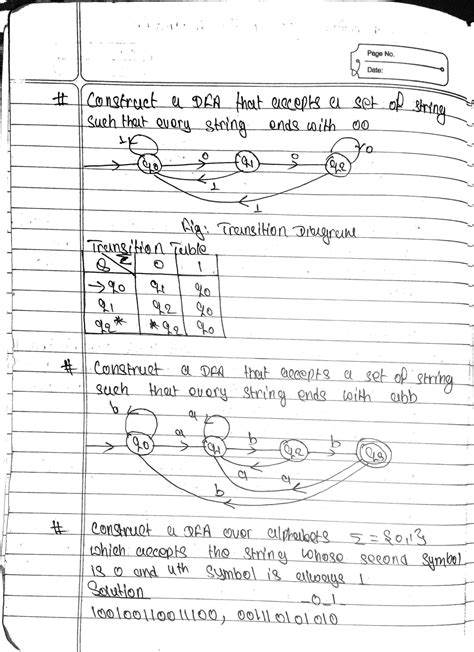 Page No.
Date:
# Construct a DFA that accepts a set of string
such that every string ends with 00
1 0 0 0
q0 q1 q2
1
1
Fig: Transition Diagram
Transition Table
Q Σ 0 1
→q0 q1 q0
q1 q2 q0
q2* *q2 q0
# Construct a DFA that accepts a set of string
such that every string ends with abb
b a
a b b
q0 q1 q2 q3
a a
b
# Construct a DFA over alphabets Σ = {0,1}
which accepts the string whose second symbol
is 0 and 4th symbol is always 1
Solution _0_1_
10010011001110​0, 00111010​1010